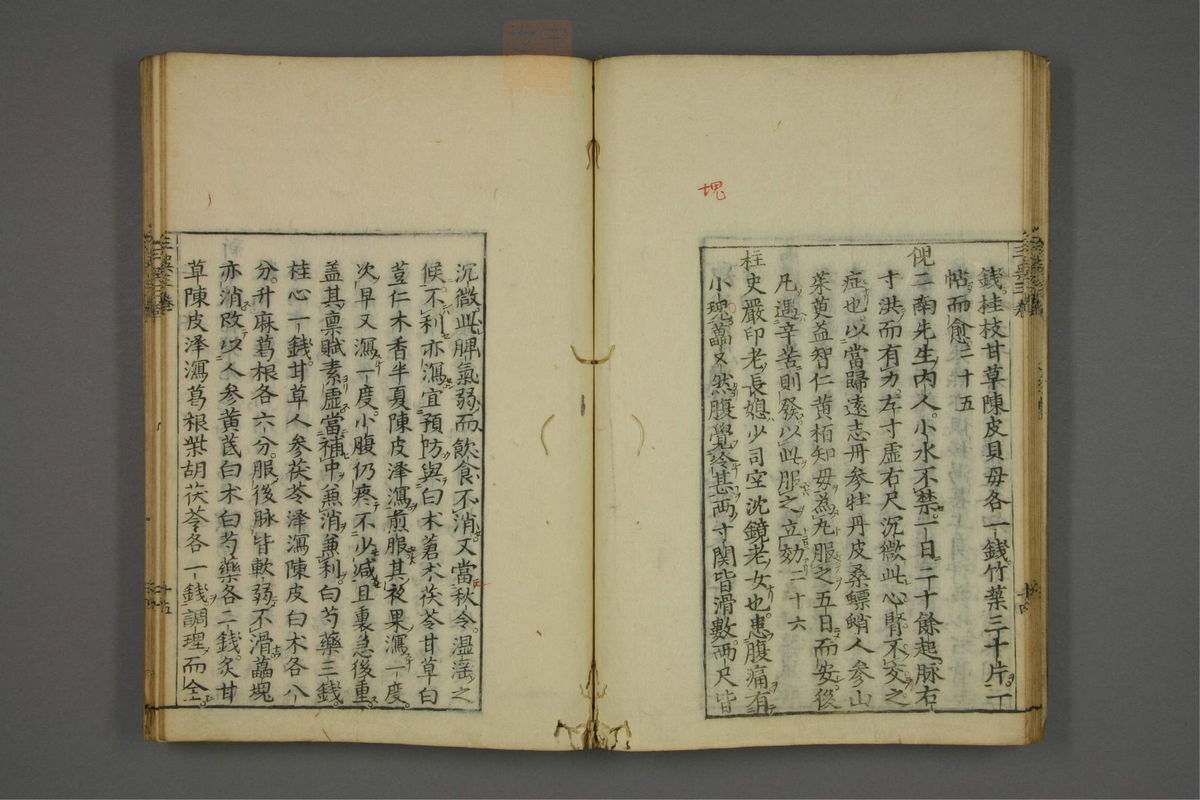 塊
錢桂枝甘草陳皮貝母各一錢竹葉三十片二
帖而愈二十五
倪二南先生内人小水不禁一日二十餘起脉右
寸洪而有力左寸虚右尺沉微此心腎不交之
症也以當歸遠志丹參牡丹皮桑螵蛸人參山
茱萸益智仁黄栢知母為丸服之五日而安後
凡遇辛苦則發以此服之立効二十六
柱史嚴印老長媳少司空沈鏡老女也患腹痛有
小瑰藟又然腹覺冷甚两寸関皆滑數两尺皆
沉微此脾氣弱而飲食不消又當秋令温滛之
候不利亦瀉宜預防與白术蒼术茯苓甘草白
荳仁木香半夏陳皮澤瀉煎服其夜果瀉一度
次早又瀉一度小腹仍疼不少减且裏急後重
盖其禀賦素虚當補中兼消兼利白芍藥三錢
桂心一錢甘草人參茯苓澤瀉陳皮白术各八
分升麻葛根各六分服後脉皆軟弱不滑藟塊
亦消改以人參黄芪白术白芍藥各二錢炙甘
草陳皮澤瀉葛根柴胡茯苓各一錢調理而全